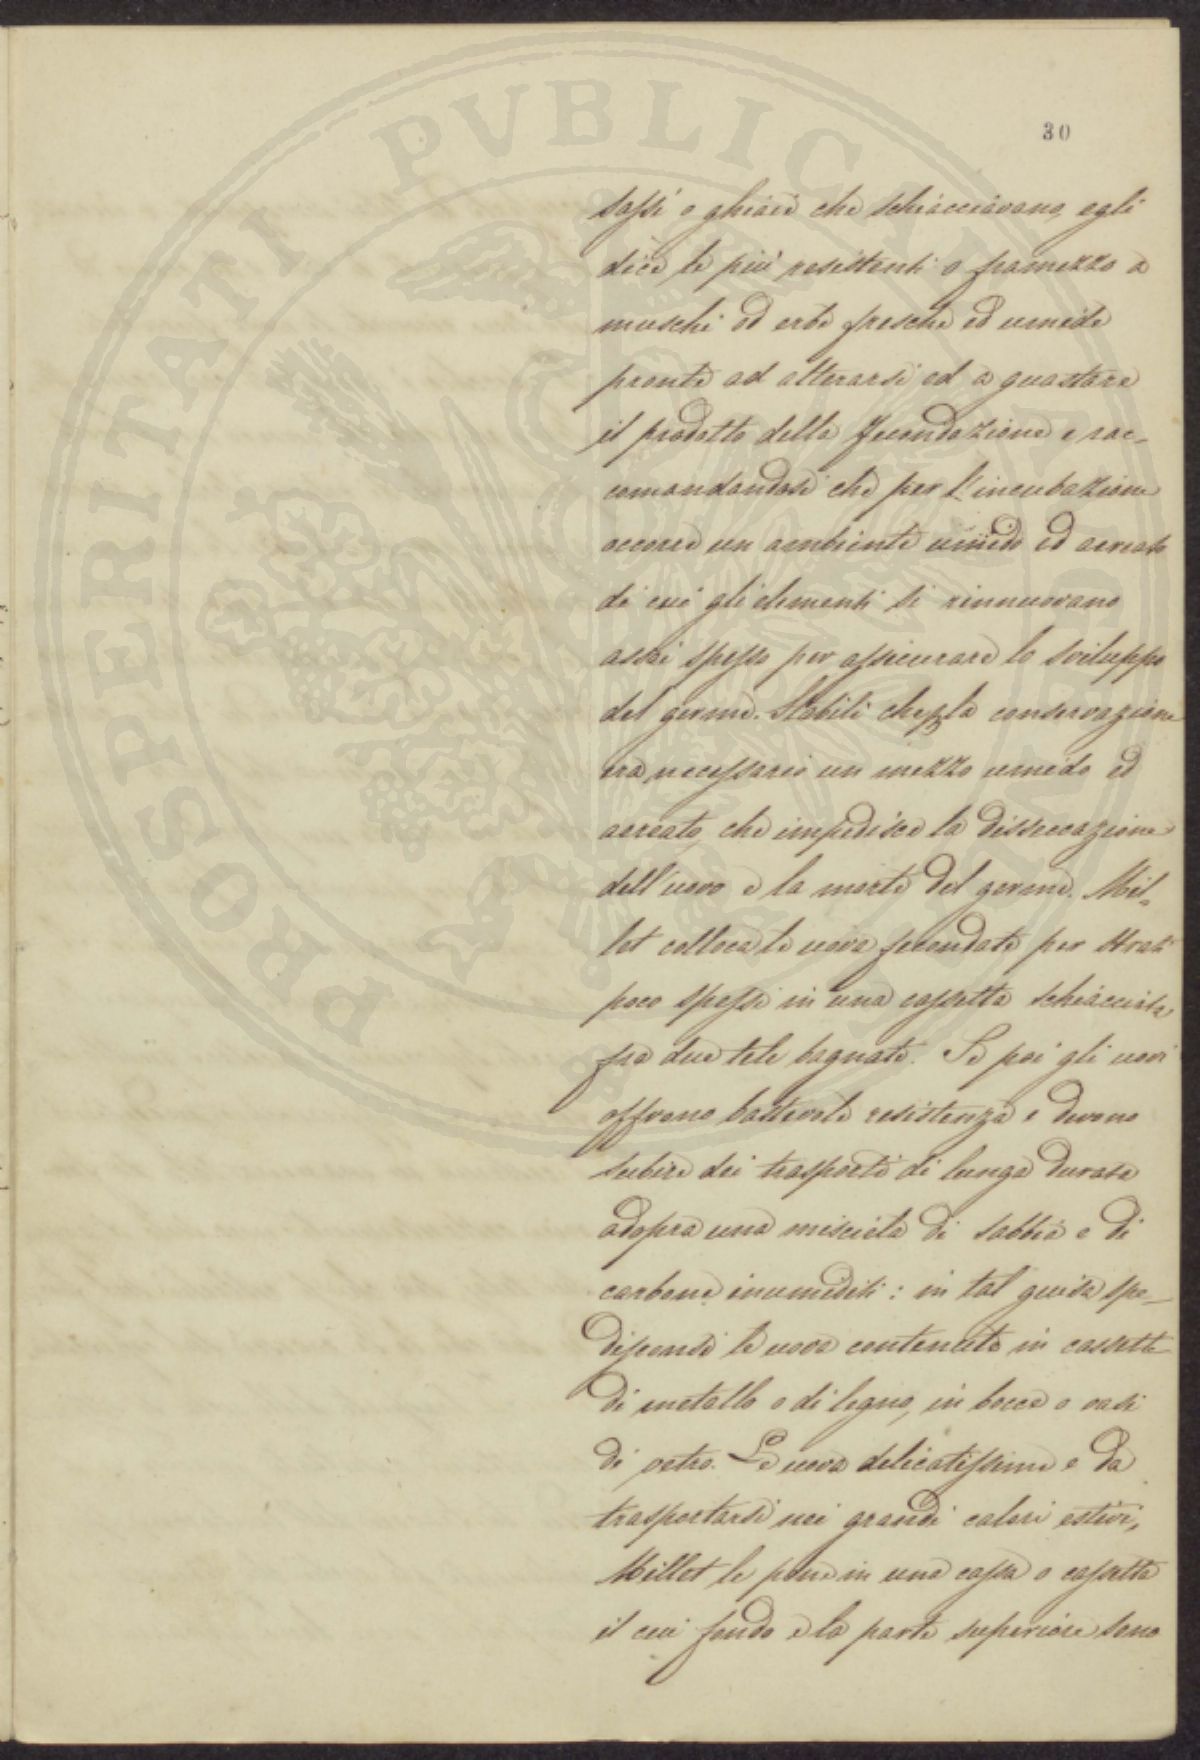 30
PROSPERITATI PVBLICAE AVGENDAE
sassi o ghiaie che schiacciavano, egli
dice le più resistenti o framezzo a
muschi od erbe fresche ed umide
pronte ad alterarsi ed a guastare
il prodotto della fecondazione e rac-
comandandosi che per l'incubazione
occorre un ambiente umido ed aereato
di cui gli elementi si rinnuovano
assai spesso per assicurare lo sviluppo
del germe. Stabilì che p la conservazione
era necessario un mezzo umido ed
aereato, che impedisce la disseccazione
dell'uovo e la morte del germe. Mil-
let colloca le uova fecondate per strati
poco spessi in una cassetta schiacciata
fra due tele bagnate. Se poi gli uovi
offrono bastevole resistenza e devono
subire dei trasporti di lunga durata
adopra una miscela di sabbia e di
carbone inumiditi: in tal guisa spe-
disconsi le uova contenute in cassette
di metallo o di legno, in bocce o vasi
di vetro. Le uova delicatissime e da
trasportarsi nei grandi calori estivi,
Millet le pone in una cassa o cassetta
il cui fondo e la parte superiore sono